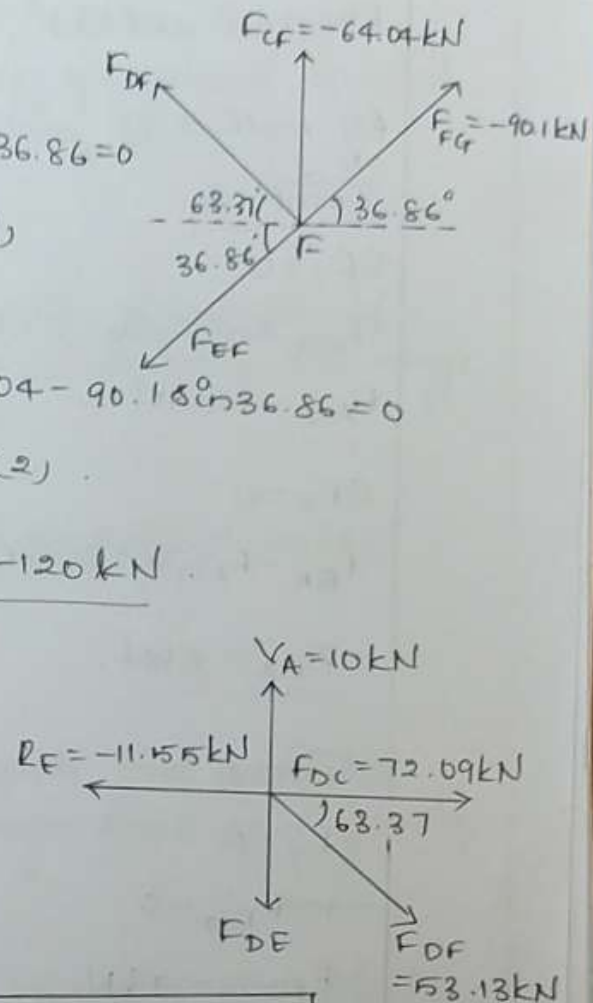 F_CF = -64.04 kN
F_DF
F_FG = -90.1 kN
36.86 = 0
63.37° 36.86°
)
36.86° F
F_EF
04 - 90.1 sin 36.86° = 0
2) .
-120 kN .
V_A = 10 kN
R_E = -11.155 kN F_DC = 72.09 kN
63.37
F_DE F_DF
= 53.13 kN